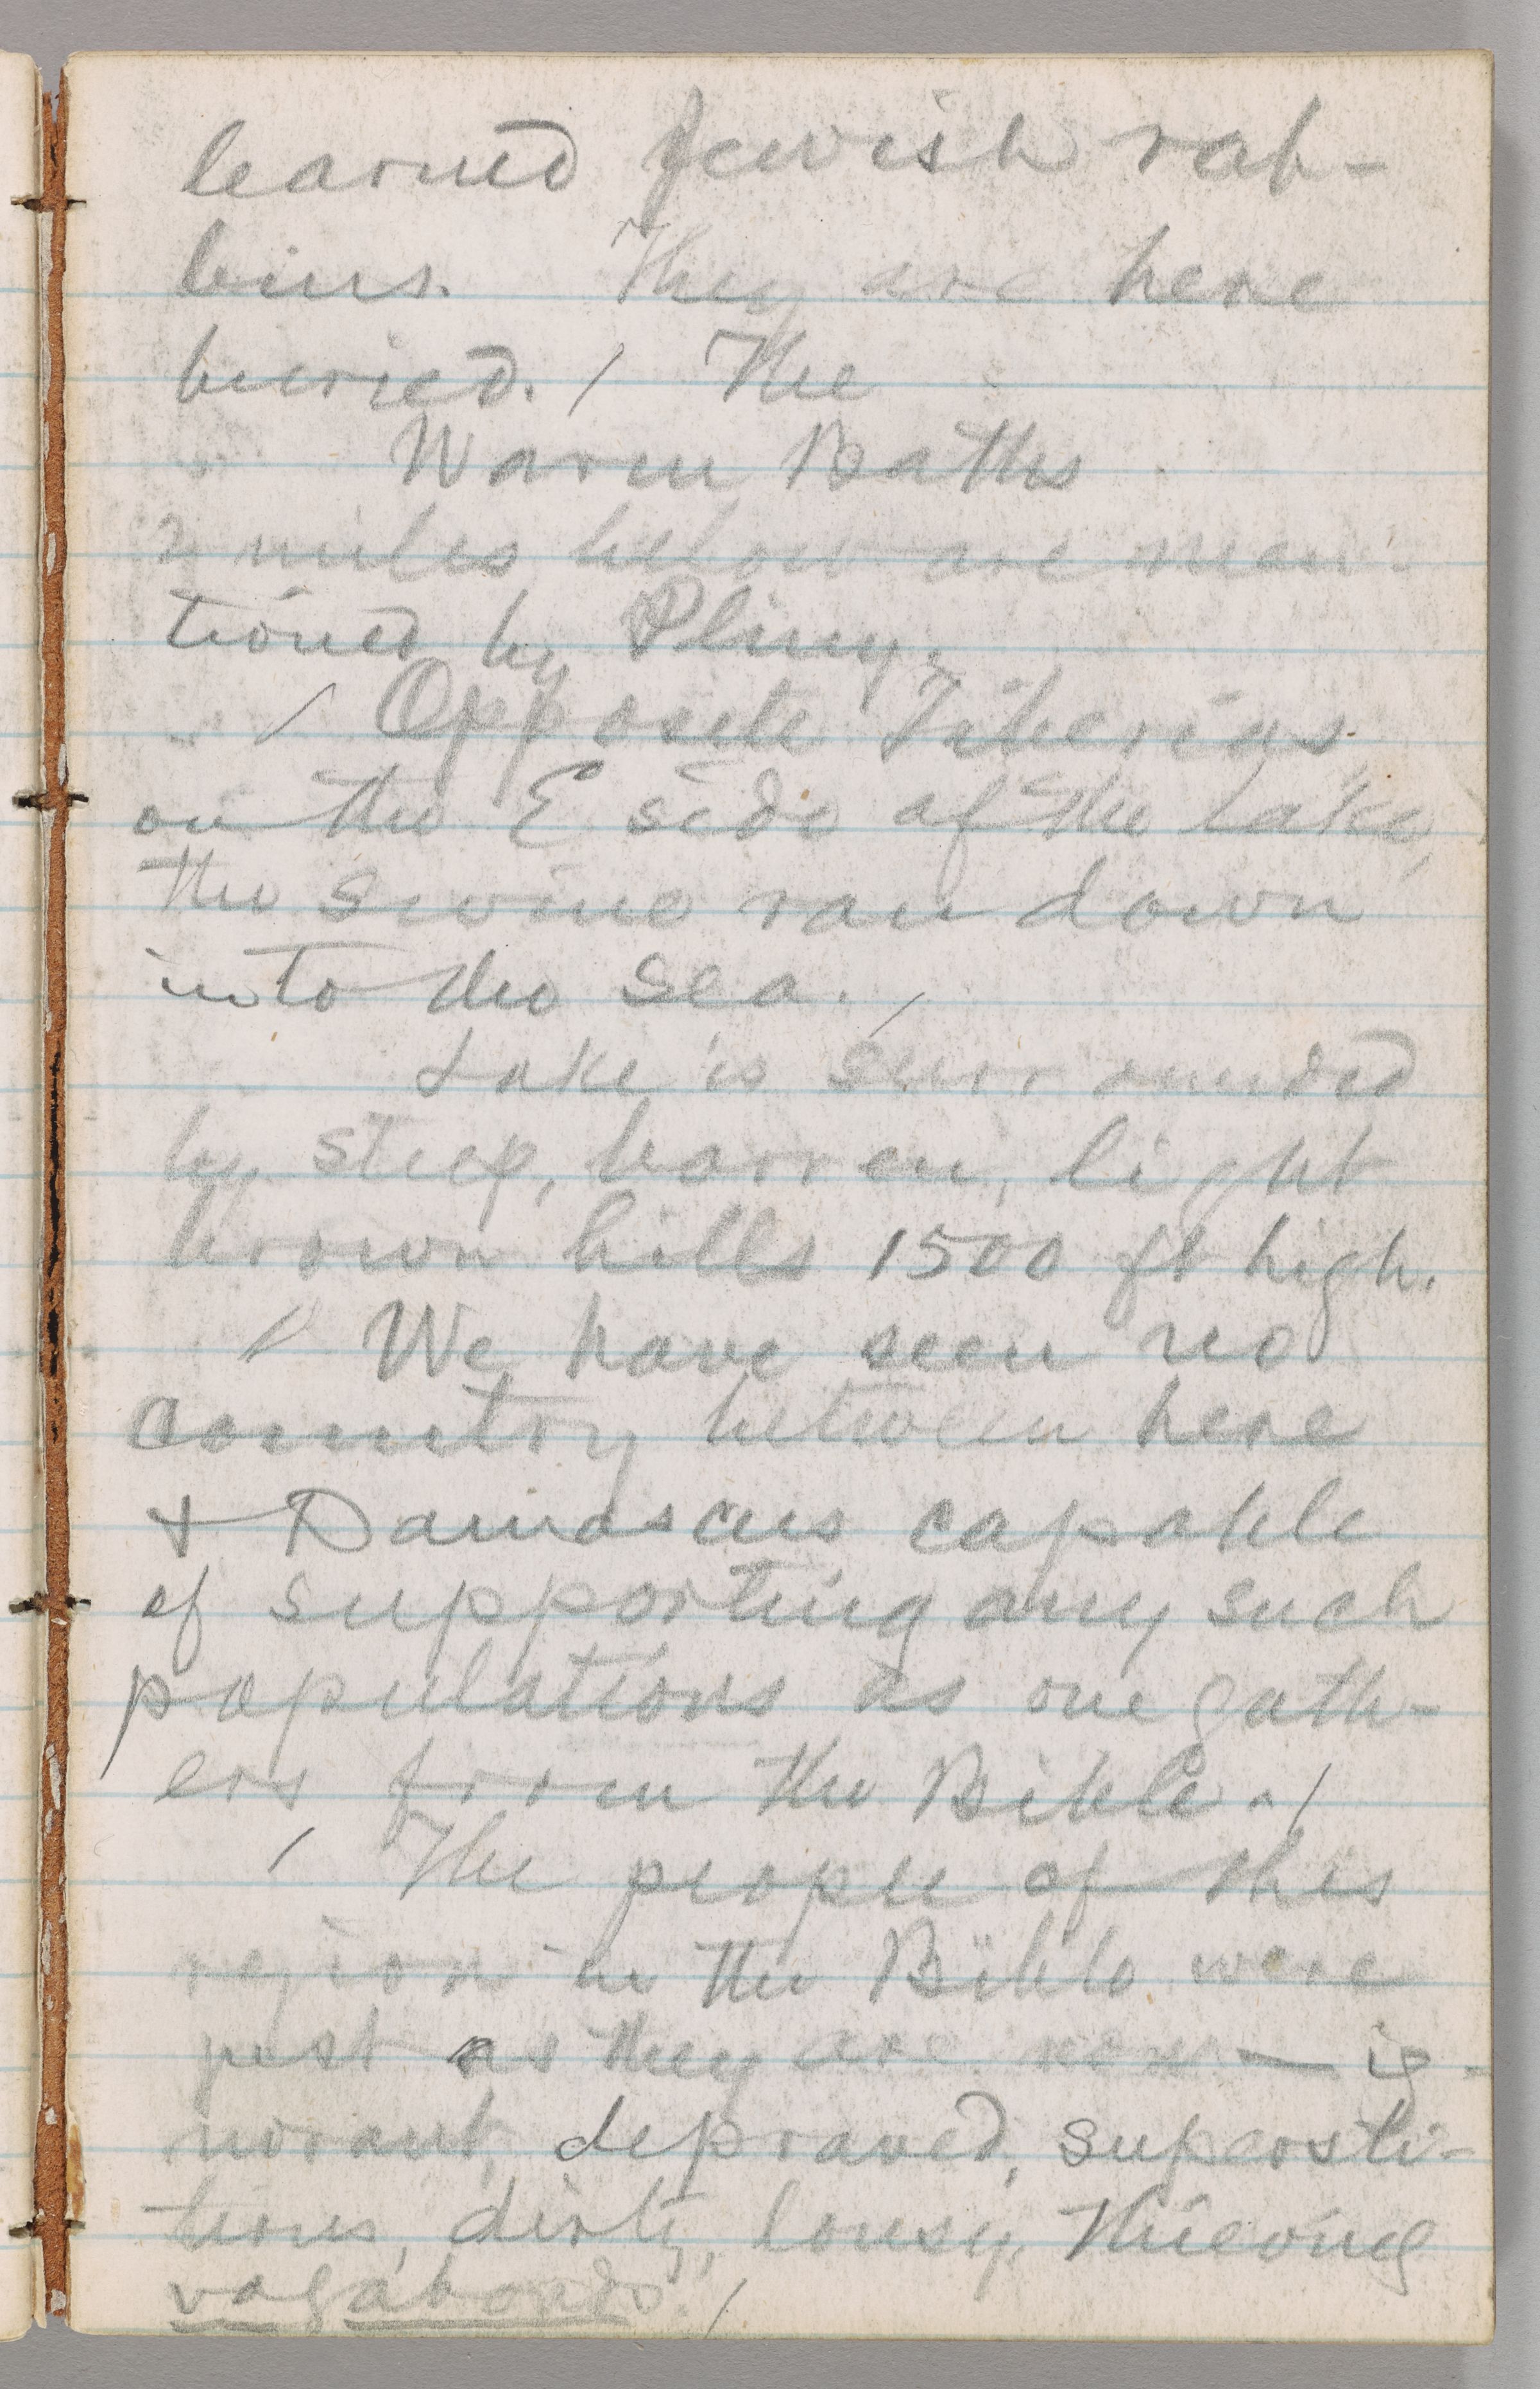 learned Jewish rab-
bins. They are here
buried. / The
Warm Baths
2 miles below are men-
tioned by Pliny.
/ Opposite Tiberias
on the E side of the lake,
the swine ran down
into the sea. /
Lake is surrounded
by steep, barren, light
brown hills 1500 ft high.
/ We have seen no
country between here
& Damascus capable
of supporting any such
populations as one gath-
ers from the Bible. /
/ The people of this
region in the Bible were
just as they are now — ig-
norant, depraved, supersti-
tious, dirty, lousy, thieving
vagabonds. /